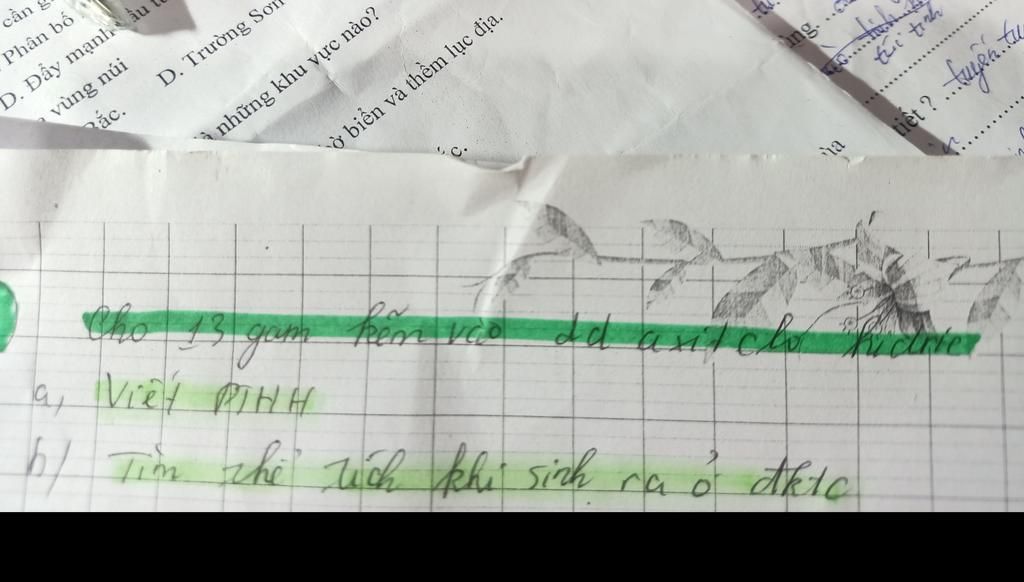 cần g
Phân bố
D. Đẩy mạnh
ầu t
vùng núi
D. Trường Sơn
Bắc.
à những khu vực nào?
ờ biển và thềm lục địa.
c.
ng
tiết ?
Cho 13 gam kẽm vào dd axit clo hidric
a, Viết PTHH
b/ Tìm thể tích khí sinh ra ở đktc